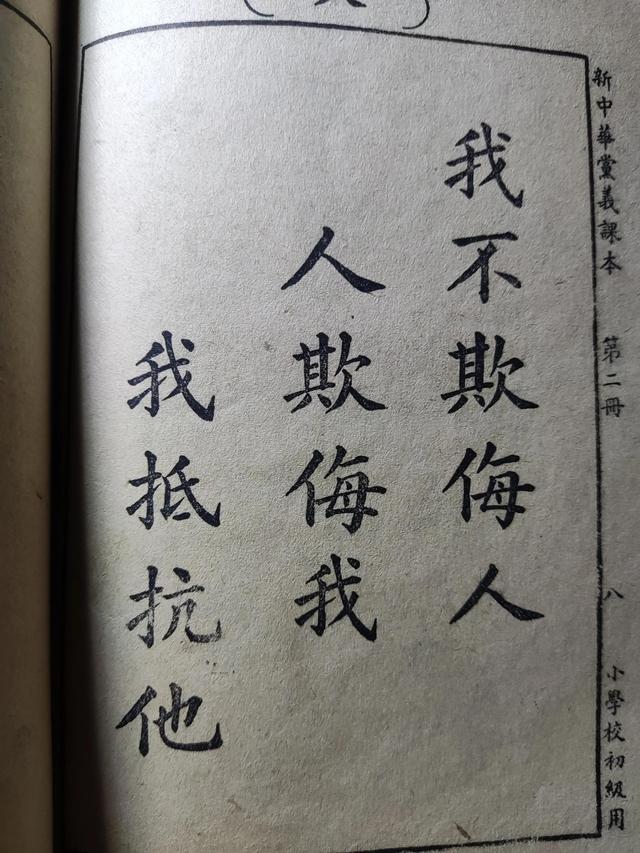 新中華黨義課本 第二冊 八 小學校初級用
我不欺侮人
人欺侮我
我抵抗他